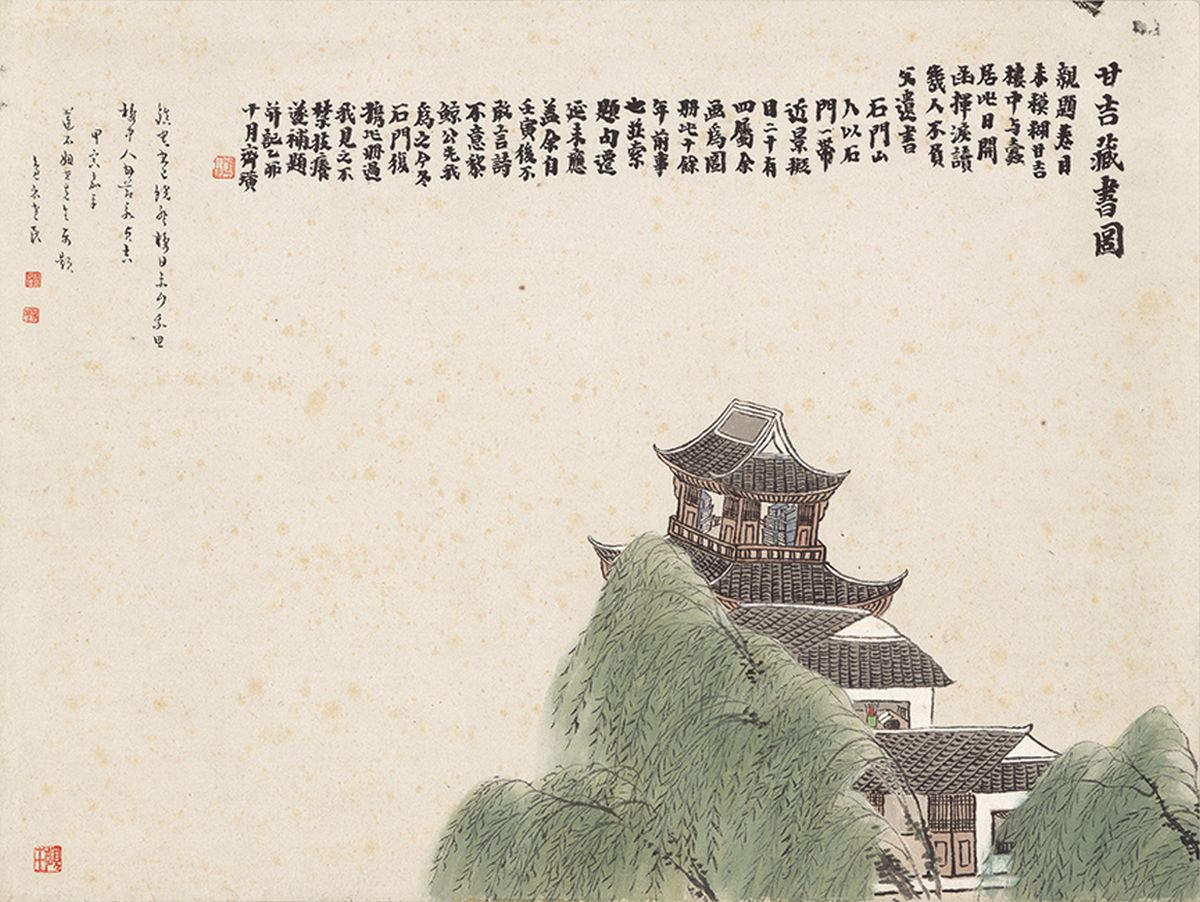 甘吉藏書圖
親題卷目
未模糊甘吉
樓中与蠹
居此日開
函揮淚讀
幾人不負
父遺書
石門山
人以石
門一帶
近景擬
目二十有
四屬余
画為圖
册此十餘
年前事
也並索
題句遷
延未應
蓋余自
壬寅後不
敢言詩
不意黎
鯨公先我
為之今冬
石門復
携此册過
我見之不
禁技癢
遂補題
并記乙卯
十月齊璜
甲寅